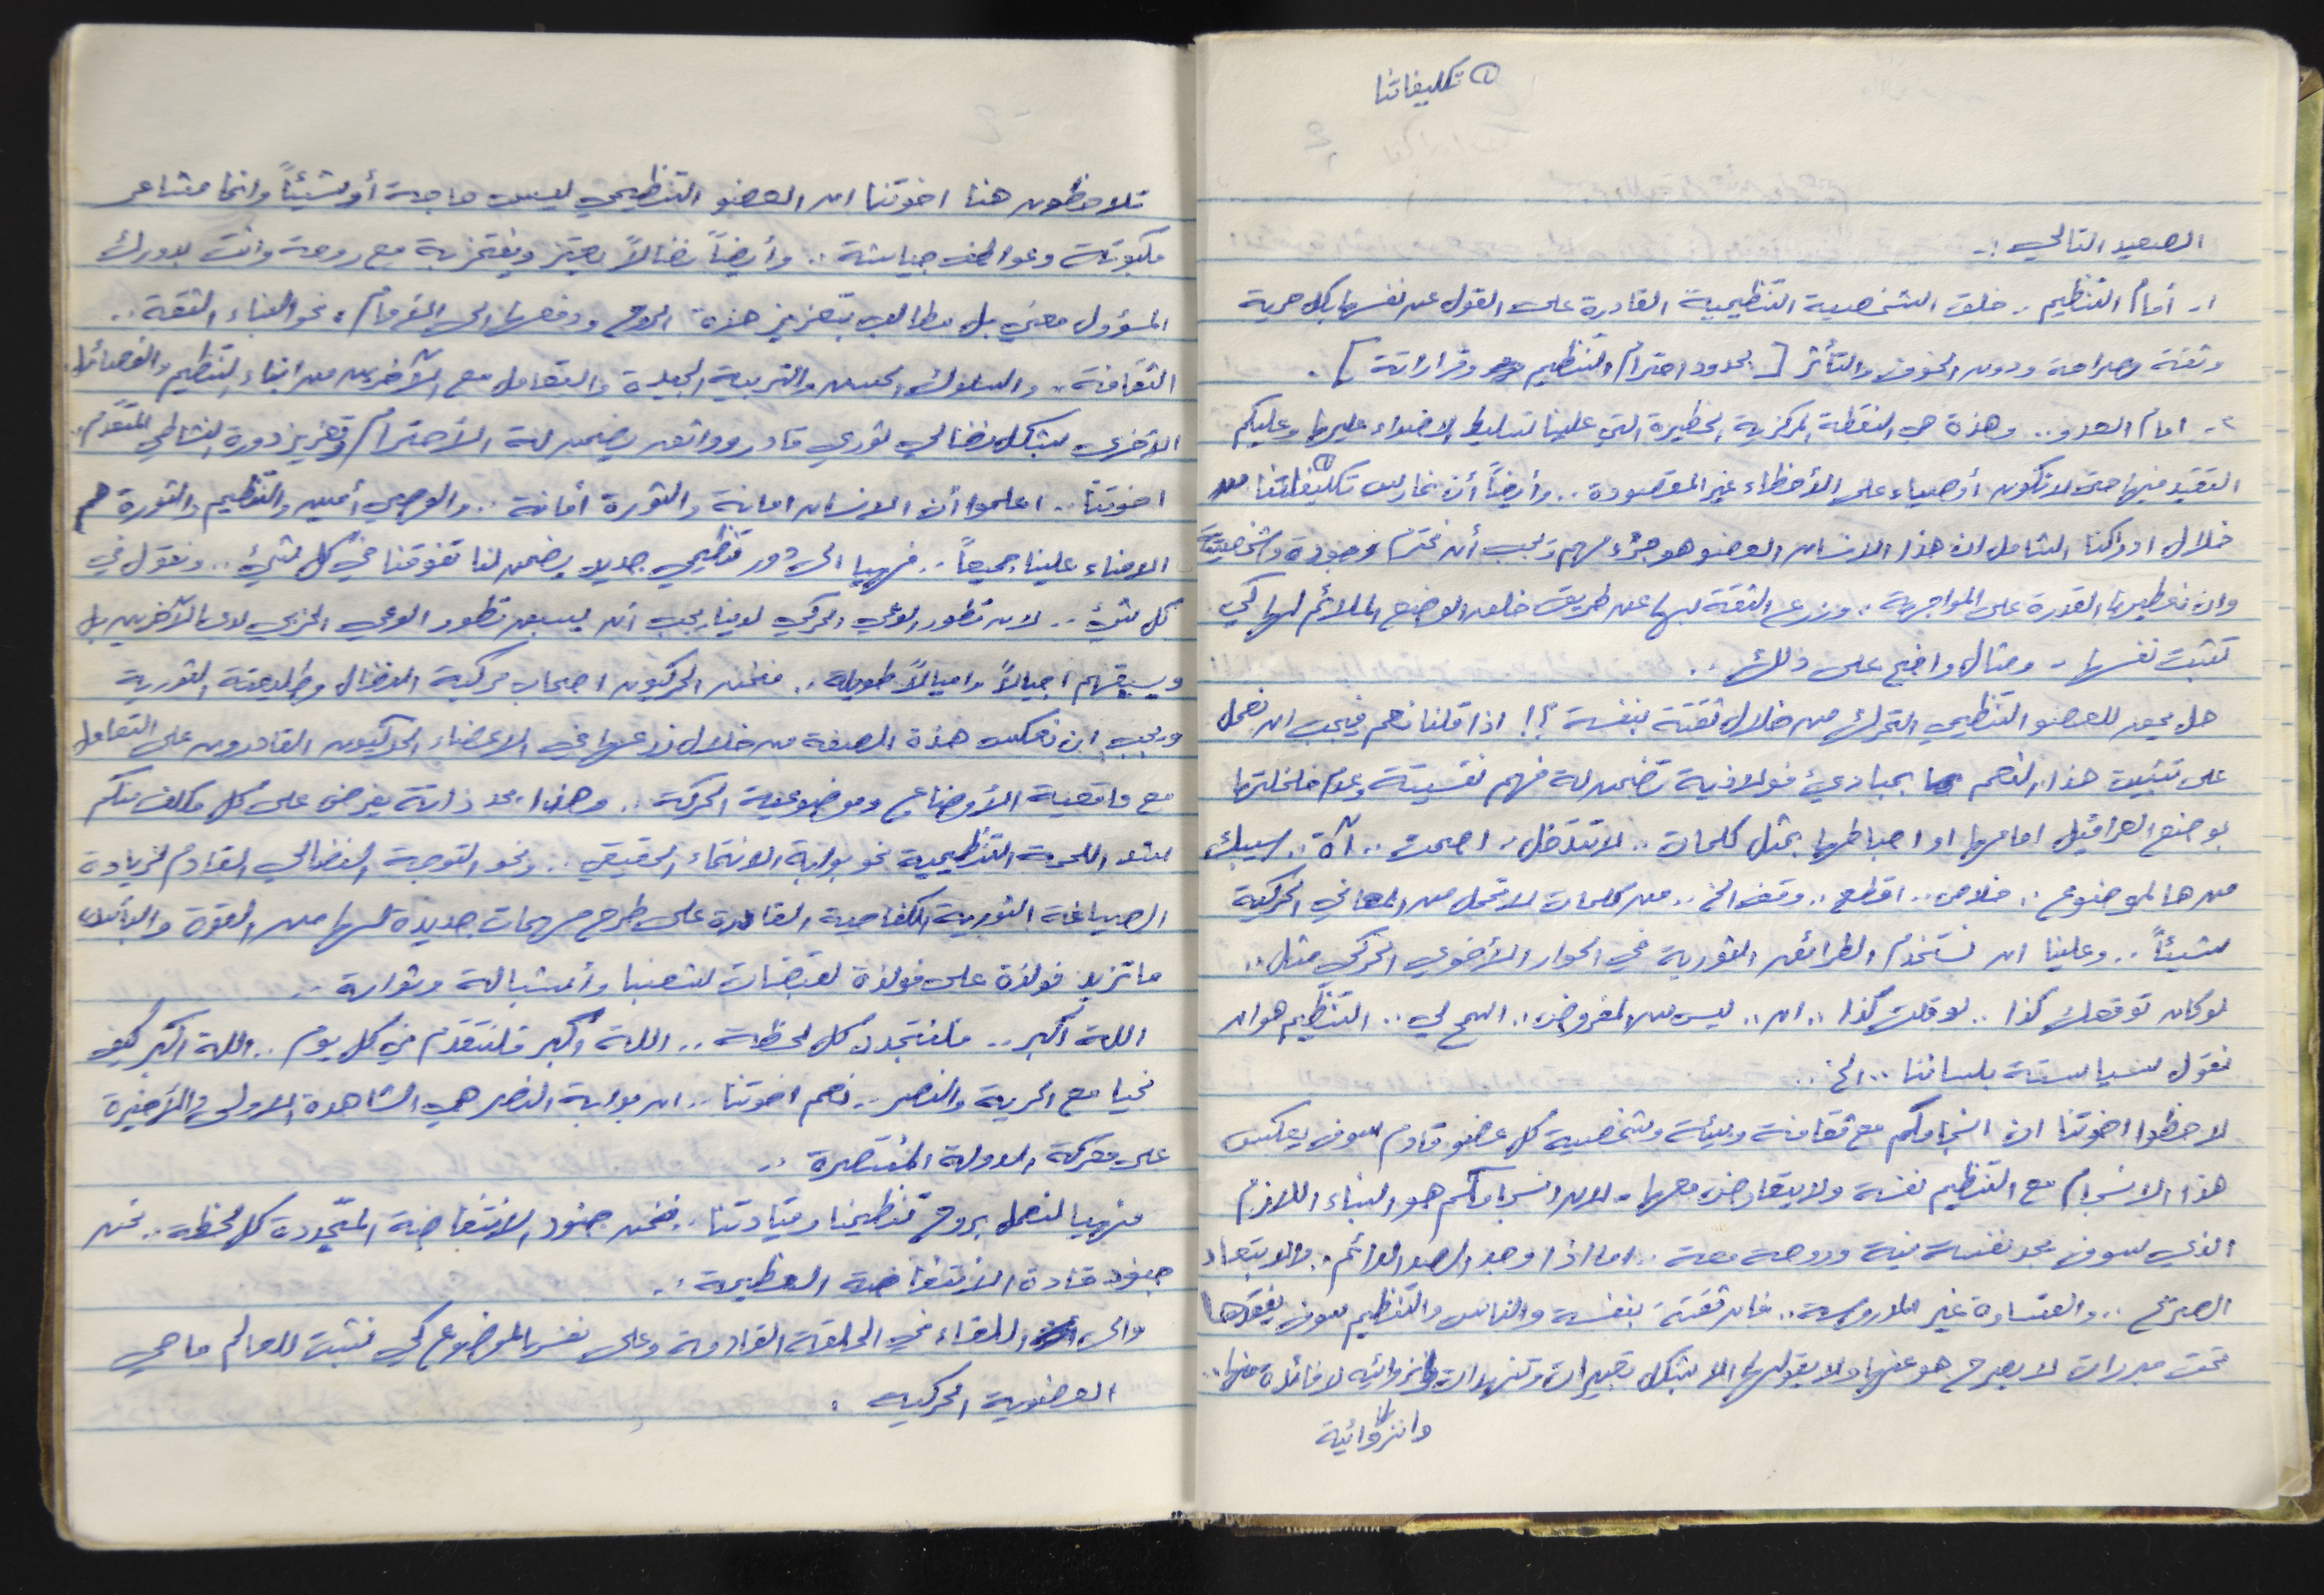 ① تكليفاتنا
الصعيد التالي :-
١- أمام التنظيم .. خلق الشخصية التنظيمية القادرة على القول عن نفسها بكل حرية
وثقة وصراحة ودون الخوف والتأثر [ بحدود احترام التنظيم وقراراته ] .
٢- امام العدو .. وهذه هي النقطة المركزية الخطيرة التي علينا تسليط الاضواء عليها وعليكم
التقيد فيها حتى لا نكون أوصياء على الأخطاء غير المقصودة .. وأيضاً أن نمارس تكليفاتنا ① من
خلال ادراكنا الشامل ان هذا الانسان العضو هو جزء مهم ويجب أن نحترم وجوده وشخصيته
وان نعطيها القدرة على المواجهة .. وزرع الثقة بها عن طريق خلق الوضع الملائم لها كي
تثبت نفسها - ومثال واضح على ذلك ..
هل يحق للعضو التنظيمي التحرك من خلال ثقته بنفسه ؟! اذا قلنا نعم فيجب ان نعمل
على تثبيت هذا النعم بمبادئ فولاذية تضمن له فهم نفسيته وعدم خلخلتها
بوضع العراقيل امامها او احباطها بمثل كلمات .. لا تتدخل ، اصمت .. آه .. سيبك
من هالموضوع .. خلاص .. اقطع .. وقف الخ .. من كلمات لا تحمل من المعاني الحركية
شيئاً .. وعلينا ان نستخدم الطرائق الثورية في الحوار الأخوي الحركي مثل ..
لو كان توقعك كذا .. لو قلت كذا .. ان .. ليس من المفروض .. اسمح لي .. التنظيم هو ان
نقول سياسته بلساننا .. الخ ..
لاحظوا اخوتنا ان انسجامكم مع ثقافة وبيئة وشخصية كل عضو قادم سوف يعكس
هذا الانسجام مع التنظيم نفسه ولا يتعارض معها - لان انسجامكم هو البناء اللازم
الذي سوف يجد نفسه فيه وروحه معه .. اما اذا وجد الصد الدائم .. والابتعاد
الصريح .. والقساوة غير المدروسة .. فان ثقته بنفسه والناس والتنظيم سوف يفقدها
تحت مبررات لا يصرح هو عنها ولا يقولها الا بشكل تعبيرات وتنهدات وانزوائيه لا فائدة منها ..
وانزوائية
تلاحظون هنا اخوتنا ان العضو التنظيمي ليس حاجة أو شيئاً وانما مشاعر
مكبوتة وعواطف جياشة .. وأيضاً نضالاً يعتز ويفتخر به مع روحه وانت بدورك
المسؤول معني بل مطالب بتعزيز هذه الروح ودفعها الى الأمام ، نحو البناء ، الثقة ..
الثقافة .. والسلوك الحسن والتربية الجيدة والتعامل مع الآخرين من ابناء التنظيم والفصائل
الاخرى بشكل نضالي ثوري قادر وواثق يضمن له الأحترام وتعزيز دوره النضالي المتقدم ..
اخوتنا .. اعلموا أن الانسان امانة والثورة أمانة .. والوصي أمين والتنظيم والثورة هم
الامناء علينا جميعاً .. فهيا الى دور تنظيمي جديد يضمن لنا تفوقنا في كل شيء .. ونقول في
كل شيء .. لان تطور الوعي الحركي لدينا يجب ان يسبق تطور الوعي الحزبي لدى الآخرين بل
ويسبقهم اجيالاً واميالاً طويلة .. فنحن الحركيون اصحاب حركية النضال وطليعته الثورية
ويجب ان نعكس هذه الصفة من خلال زرعها في الاعضاء الحركيون القادرون على التعامل
مع واقعية الأوضاع وموضوعية الحركة .. وهذا بحد ذاته يفرض على كل مكلف منكم
شد اللحمة التنظيمية نحو بوابة الانتماء الحقيقي .. ونحو التوجه النضالي القادم لزيادة
الصياغة الثورية الكفاحية القادرة على طرح مهمات جديدة لها من القوة والبأس
ما تزيد فولاذة على فولاذة لقبضات شعبنا وأشباله وثواره ..
الله أكبر .. فلنتجدد كل لحظة .. الله أكبر فلنتقدم في كل يوم .. والله أكبر كيف
نحيا مع الحرية والنصر .. نعم اخوتنا .. ان بوابة النصر هي الشاهدة الاولى والأخيرة
على معركة الدولة المنتصرة ..
فهيا لنعمل بروح تنظيمنا وقيادتنا .. فنحن جنود الانتفاضة المتجددة كل لحظة .. نحن
جنود قادة الانتفاضة العظيمة ..
والى اللقاء في الحلقة القادمة وعلى نفس الموضوع كي نثبت للعالم ما هي
العضوية الحركية .